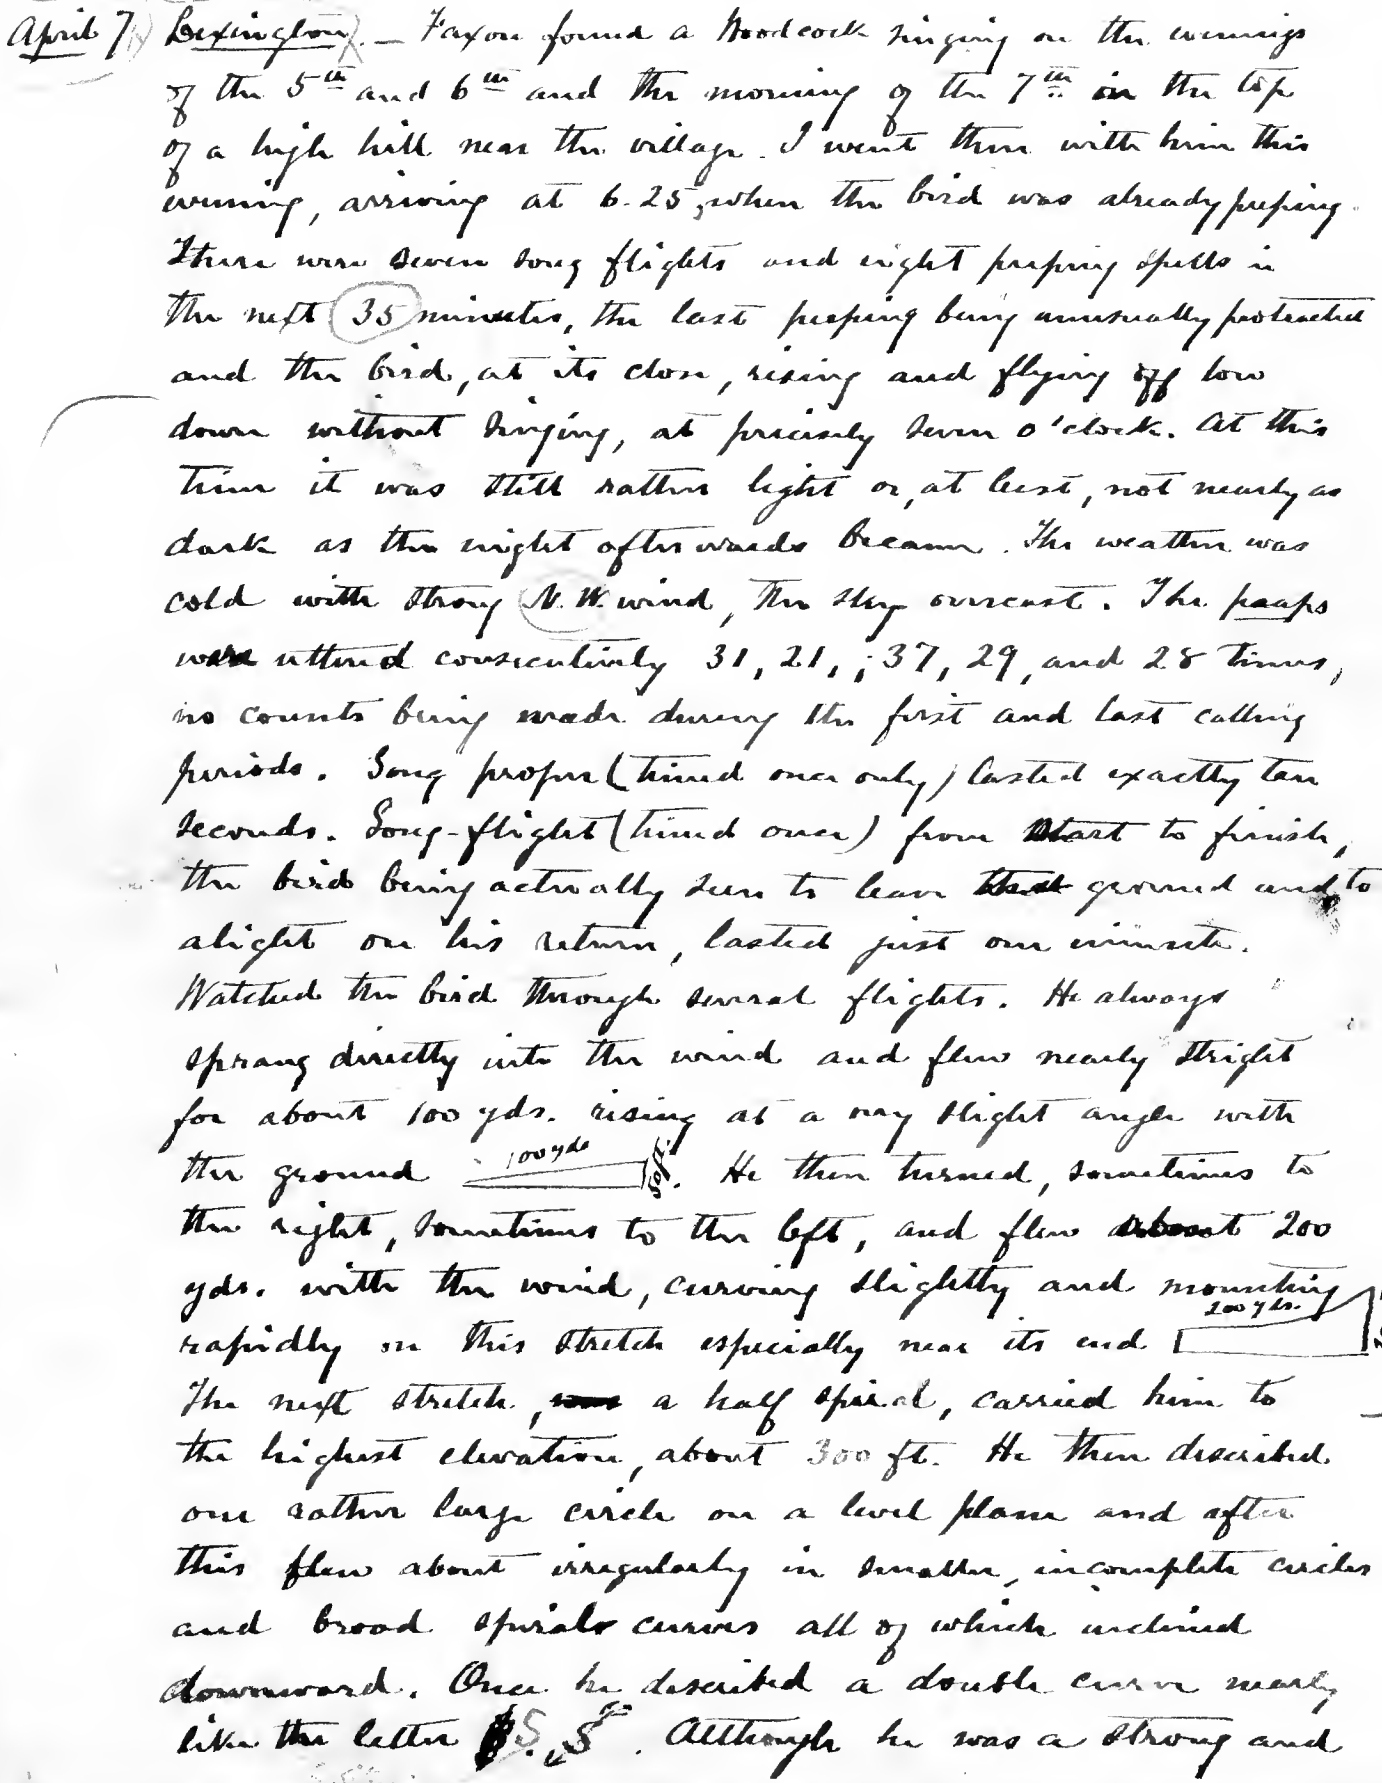 April 7) Lexington. – Faxon found a Woodcock singing on the evenings
of the 5th and 6th and the morning of the 7th in the top
of a high hill near the village. I went there with him this
evening, arriving at 6.25, when the bird was already peeping.
There were seven song flights and eight peeping spells in
the next 35 minutes, the last peeping being unusually protracted
and the bird, at its close, rising and flying off low
down without singing, at precisely seven o'clock. At this
time it was still rather light or, at least, not nearly as
dark as the night afterwards became. The weather was
cold with strong N.W. wind, the sky overcast. The paaps
were uttered consecutively 31, 21, ; 37, 29, and 28 times,
no counts being made during the first and last calling
periods. Song proper (timed once only) lasted exactly ten
seconds. Song-flight (timed once) from start to finish,
the bird being actually seen to leave the ground and to
alight on his return, lasted just one minute.
Watched the bird through several flights. He always
sprang directly into the wind and flew nearly stright
for about 100 yds. rising at a very slight angle with
the ground 100 yds 50 ft. He then turned, sometimes to
the right, sometimes to the left, and flew about 200
yds. with the wind, curving slightly and mounting
rapidly on this stretch especially near its end 200 yds.
The next stretch, a half spiral, carried him to
the highest elevation, about 300 ft. He then described
one rather large circle on a level plane and after
this flew about irregularly in smaller, incomplete circles
and broad spiral curves all of which inclined
downward. Once he described a double curve nearly
like the letter S. S. Although he was a strong and